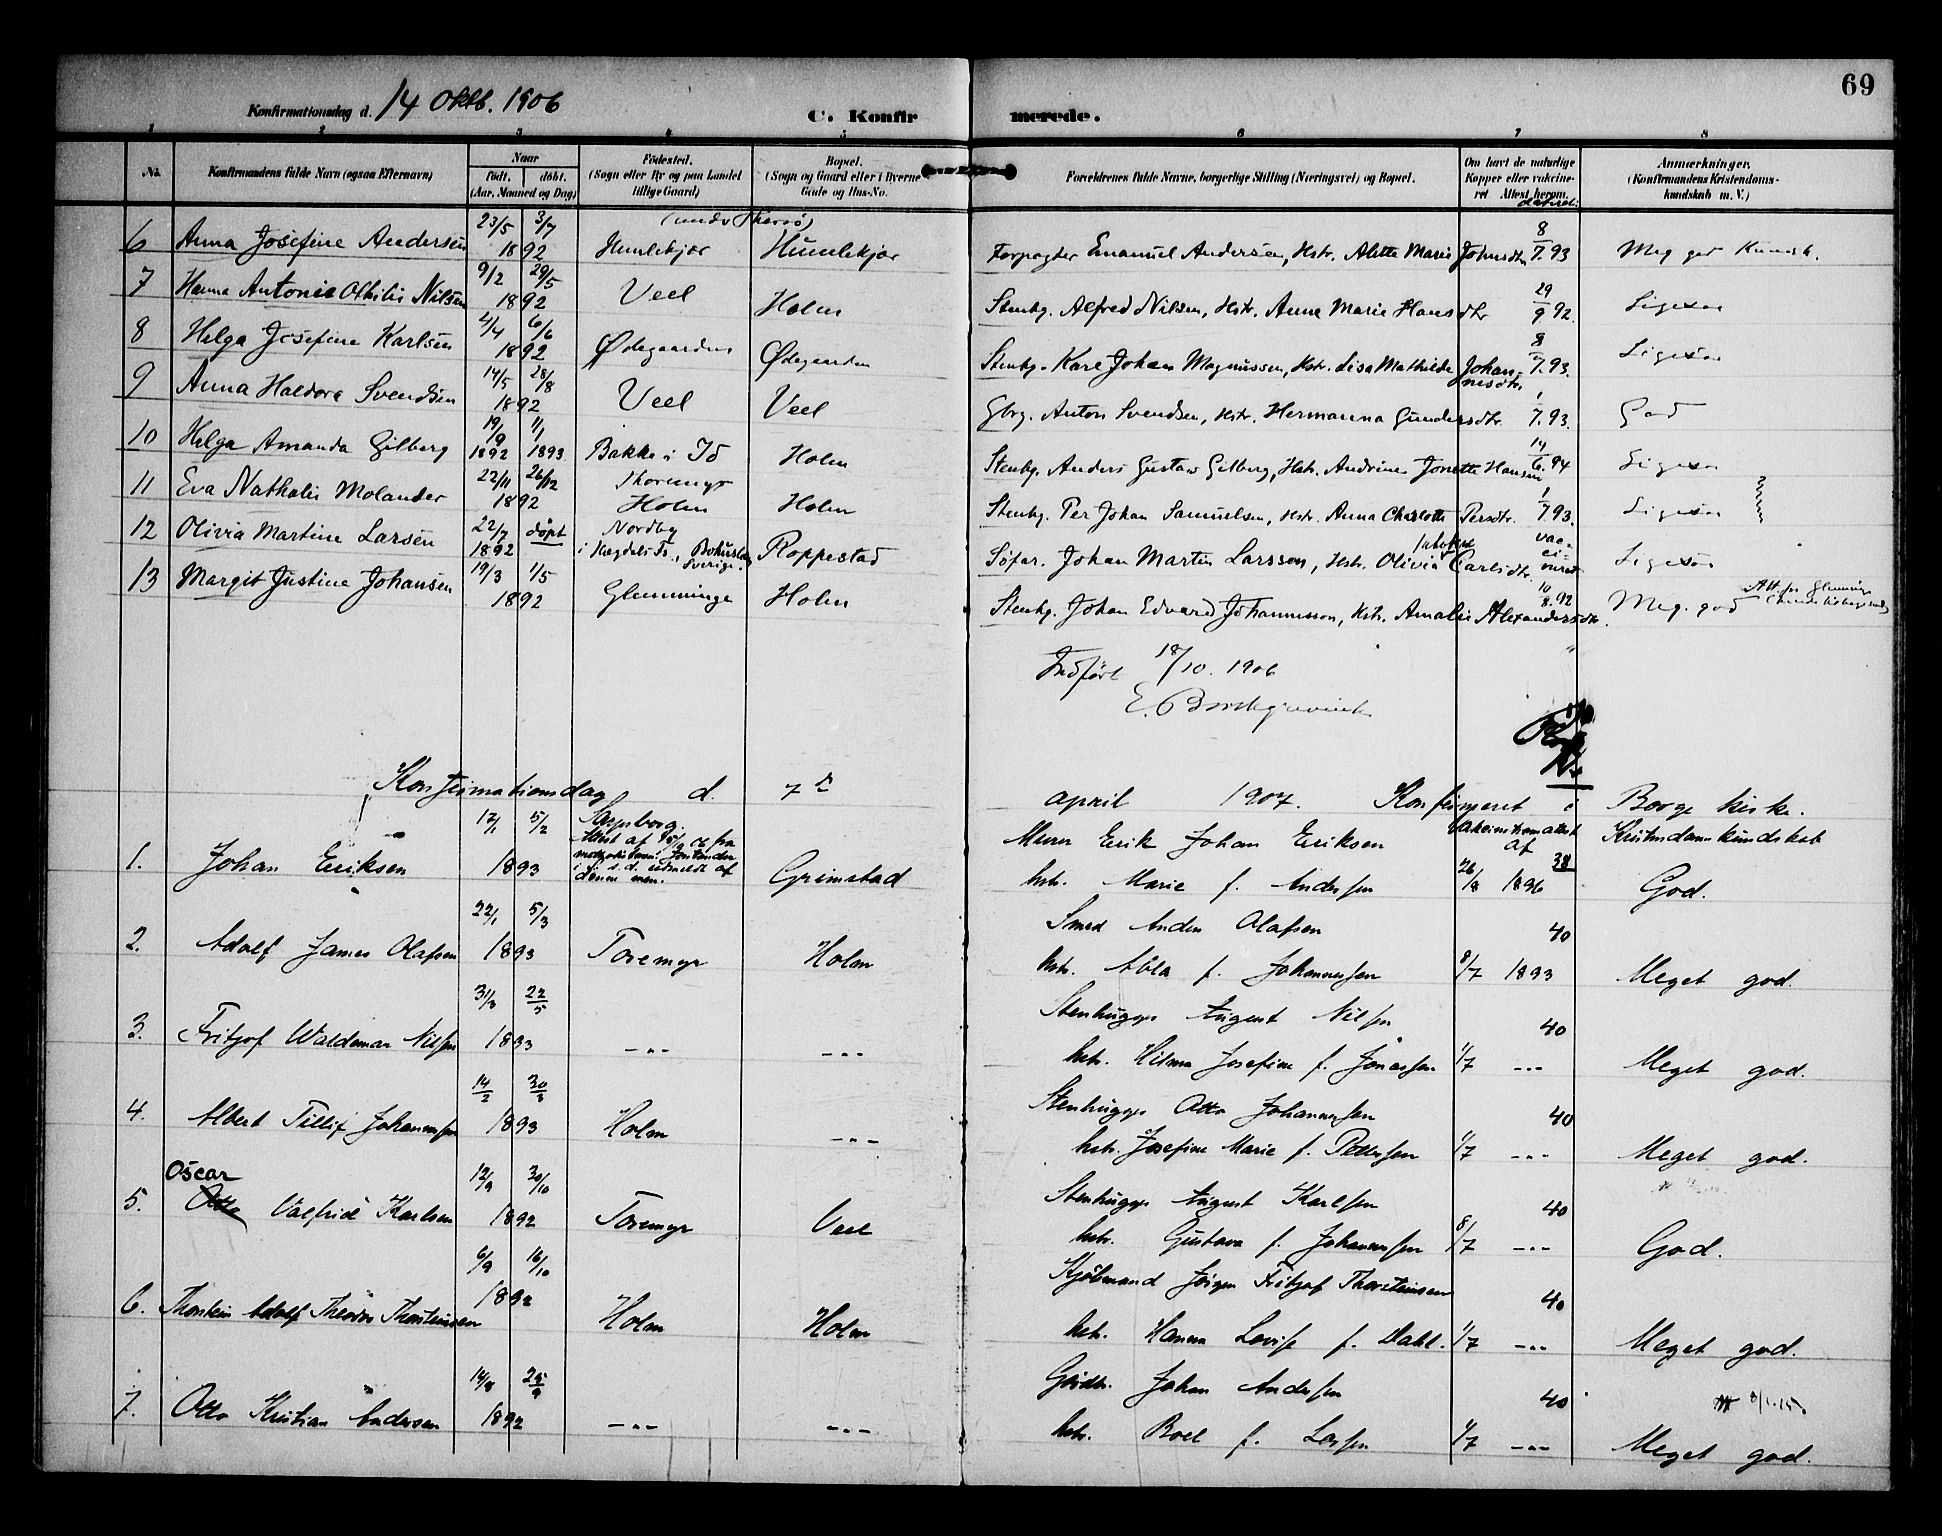 69
Konfirmationsdag d. 14 Oktb. 1906 C. Konfirmerede.
1 2 3 4 5 6 7 8
No. Konfirmandens fulde Navn (ogsaa Efternavn) Naar født. døbt. (Aar, Maaned og Dag) Fødested. (Sogn eller By og paa Landet tillige Gaard) Bopæl. (Sogn og Gaard eller i Byerne Gade og Hus-No. Forældrenes fulde Navne, borgerlige Stilling (Næringsvei) og Bopæl. Om havt de naturlige Kopper eller vakcineret Attest herom, dateret: Anmærkninger. (Konfirmandens Kristendomskundskab m. V.)
6 Anna Josefine Andersen 23/5 3/7 1892 Humlekjær (under Thorsø) Humlekjær Forpagter Emanuel Andersen, Hstr. Alette Marie Johnsdtr 8/7.93 Meg god Kundsk.
7 Hanna Antonie Othilie Nilsen 9/2 29/5 1892 Veel Holm Stenhg. Alfred Nilsen, Hstr. Anna Marie Hansdtr 29/9 92. Ligesaa
8 Helga Josefine Karlsen 4/4 6/6 1892 Ødegaarden Ødegaarden Stenhg. Karl Johan Magnussen, Hstr. Lisa Mathilde Johannesdtr. 8/7.93. Ligesaa
9 Anna Haldora Svendsen 14/5 28/8 1892 Veel Veel Gbrg. Anton Svendsen, Hstr. Hermanna Gundersdtr. 1/7.93. God
10 Helga Amanda Gilberg 19/9 1892 1/1 1893 Bakke i Id Holm Stenhg. Anders Gustav Gilberg, Hstr. Andrine Jonette Hansen 14/6.94 Ligesaa
11 Eva Nathalie Molander 22/11 26/12 1892 Thoremyr Holm Holm Stenhg. Per Johan Samuelsen, Hstr. Anna Charlotte Persdtr. 1/7 93. Ligesaa
12 Olivia Martine Larsen 22/7 1892 døpt Nordby i Sverige. Roppestad Søfar. Johan Martin Larsson, Hstr. Olivia Carlsdtr. vaccineret Ligesaa
13 Margit Justine Johansen 19/3 1/5 1892 Glemminge Holm Stenhg. Johan Edvard Johannesson, Hstr. Amalie Alexandersdtr. 10/8.92 Meg. god Att. fra Glemminge
Indført 18/10. 1906
E. Borchgrevink
Konfirmationsdag d. 7de april 1907. Konfirmeret i Borge kirke.
Vakcinationsattest af Kristendomskundskab
1. Johan Eriksen 12/1 5/2 1893 Sarpsborg Grimstad Murer Erik Johan Eriksen
hstr. Marie f. Andersen 26/8 1896 38 God.
2. Adolf James Olafsen 22/1 5/3 1893 Toremyr Holm Smed Anders Olafsen 40
hstr. Abla f. Johannessen 8/7 1893 Meget god.
3. Fritjof Waldemar Nilsen 31/3 22/5 1893 -"- -"- Stenhugger August Nilsen 40
hstr. Hilma Josefine f. Jonassen 1/7 -"- Meget god.
4. Albert Tillif Johannessen 14/2 30/3 1893 Holm -"- Stenhugger Otto Johannessen 40
hstr. Josefine Marie f. Pettersen 1/7 -"- Meget god.
Oscar
5. Otto Valfrid Karlsen 12/9 30/10 1892 Toremyr Veel Stenhugger August Karlsen 40
hstr. Gustava f. Johannessen 8/7 -"- God.
6. Thorstein Adolf Theodor Thorsteinsen 6/9 16/10 1892 Holm Holm Kjøbmand Jørgen Fritjof Thorsteinsen 40
hstr. Hanna Lovise f. Dahl. 1/7 -"- Meget god.
7. Otto Kristian Andersen 14/8 25/9 1892 -"- -"- Gårdbr. Johan Andersen 40
hstr. Boel f. Larsen 1/7 -"- Meget god.